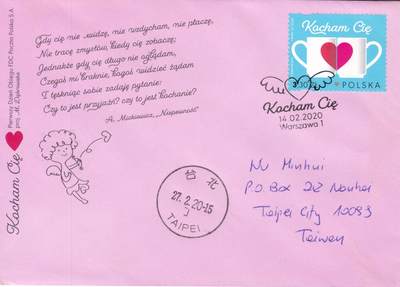 Pierwszy Dzień Obiegu FDC Poczta Polska S.A.
proj. M. Dąbrowska
Kocham Cię
Gdy cię nie widzę, nie wzdycham, nie płaczę,
Nie tracę zmysłów, kiedy cię zobaczę;
Jednakże gdy cię długo nie oglądam,
Czegoś mi braknie, kogoś widzieć żądam
I tęskniąc sobie zadaję pytanie:
Czy to jest przyjaźń? czy to jest kochanie?
A. Mickiewicz, „Niepewność”
Kocham Cię
POLSKA
Kocham Cię
14.02.2020
Warszawa 1
台北
27.2.20-15
TAIPEI
P.O. Box 2-12 Nanhai
Taipei City 10099
Taiwan